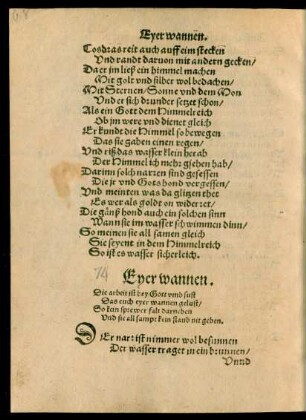 Eyer wannen.
Cosdras reit auch auff eim stecken
Vnd randt daruon mit andern gecken/
Da er jm ließ ein himmel machen
Mit golt vnd silber wol bedachen/
Mit Sternen/ Sonne vnd dem Mon
Vnd er sich drunder setzet schon/
Als ein Gott dem Himmelreich
Ob jm were vnd dienet gleich
Er kunde die Himmel so bewegen
Das sie gaben einen regen/
Vnd rißd das wasser klein herab
Der Himmel ich mehr gsehen hab/
Darinn solch narren sind gesessen
Die jr vnd Gots hond vergessen/
Vnd meinten was da glitzen thet
Es wer als goldt on widerret/
Die gänß hond auch ein solchen sinn
Wann sie im wasser schwimmen dinn/
So meinen sie all samen gleich
Sie seyent in dem Himmelreich
So ist es wasser sicherlich.
74
Eyer wannen.
Die arbeit ist bey Gott vmb sust
Das euch eyer wannen gelust/
So kein sprewer falt darneben
Vnd sie all sampt kein staub nit geben.
DEr nar: ist nimmer wol besunnen
Der wasser traget in ein brunnen/
Vnnd